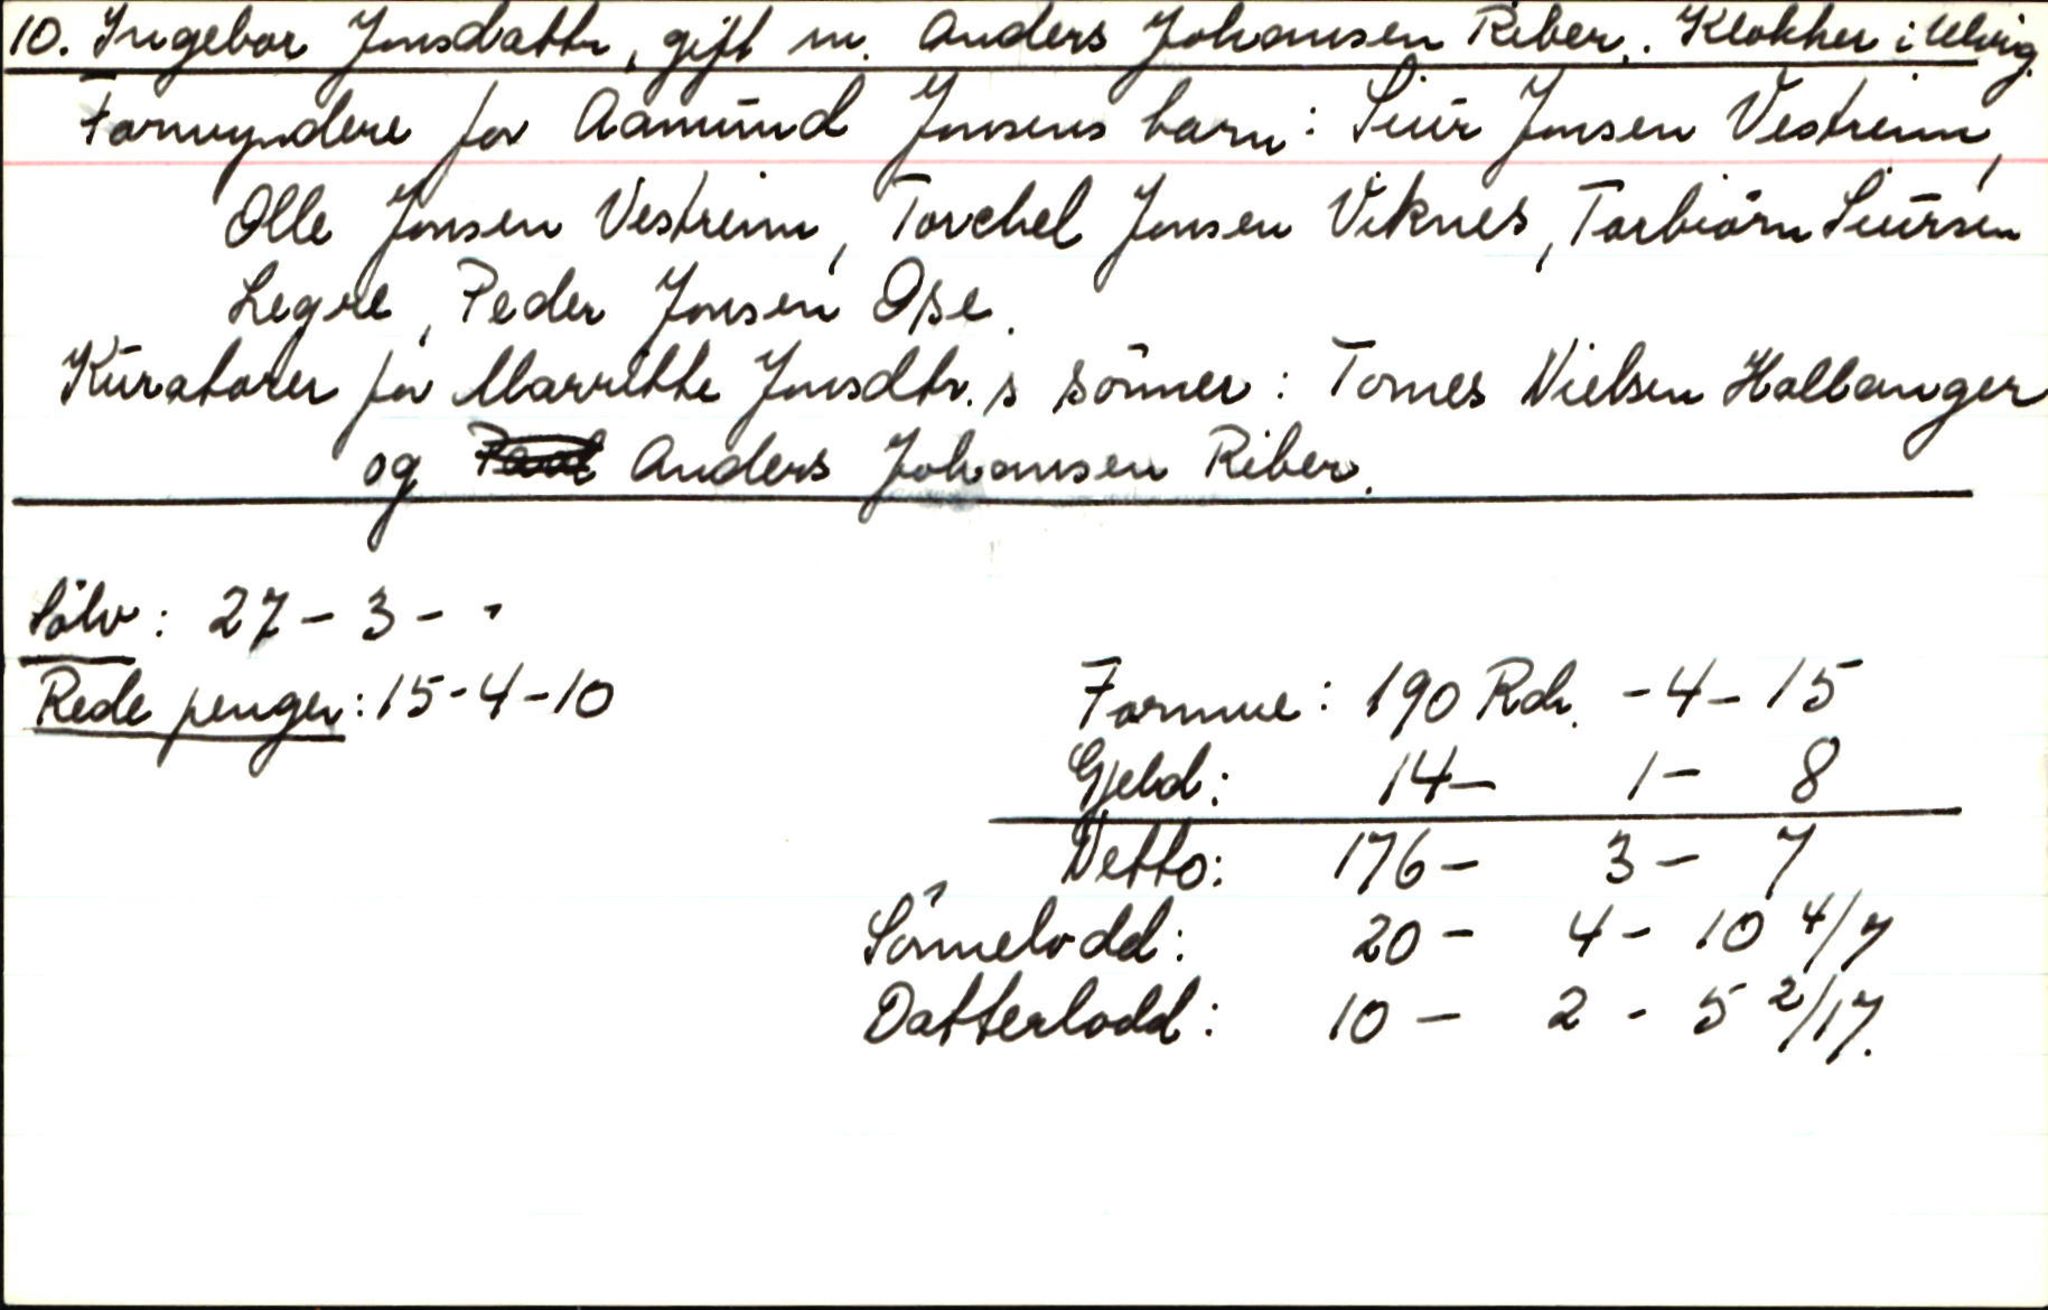 10. Ingebor Jonsdattr, gift m. Anders Johansen Riber, Klokker i Ulvig.
Formyndere for Aamund Jonsens barn: Siur Jonsen Vestreim,
Olle Jonsen Vestreim, Torchel Jonsen Viknes, Torbiörn Siursen
Legre, Peder Jonsen Ose.
Kuratorer for Marritte Jonsdtr.s sönner: Tomes Nielsen Hallanger
og Anders Johansen Riber.
Sölv: 27 - 3 - -
Rede penger: 15 - 4 - 10
Formue: 190 Rdr. - 4 - 15
Gjeld: 14 - 1 - 8
Netto: 176 - 3 - 7
Sönnelodd: 20 - 4 - 10 4/7
Datterlodd: 10 - 2 - 5 2/17.